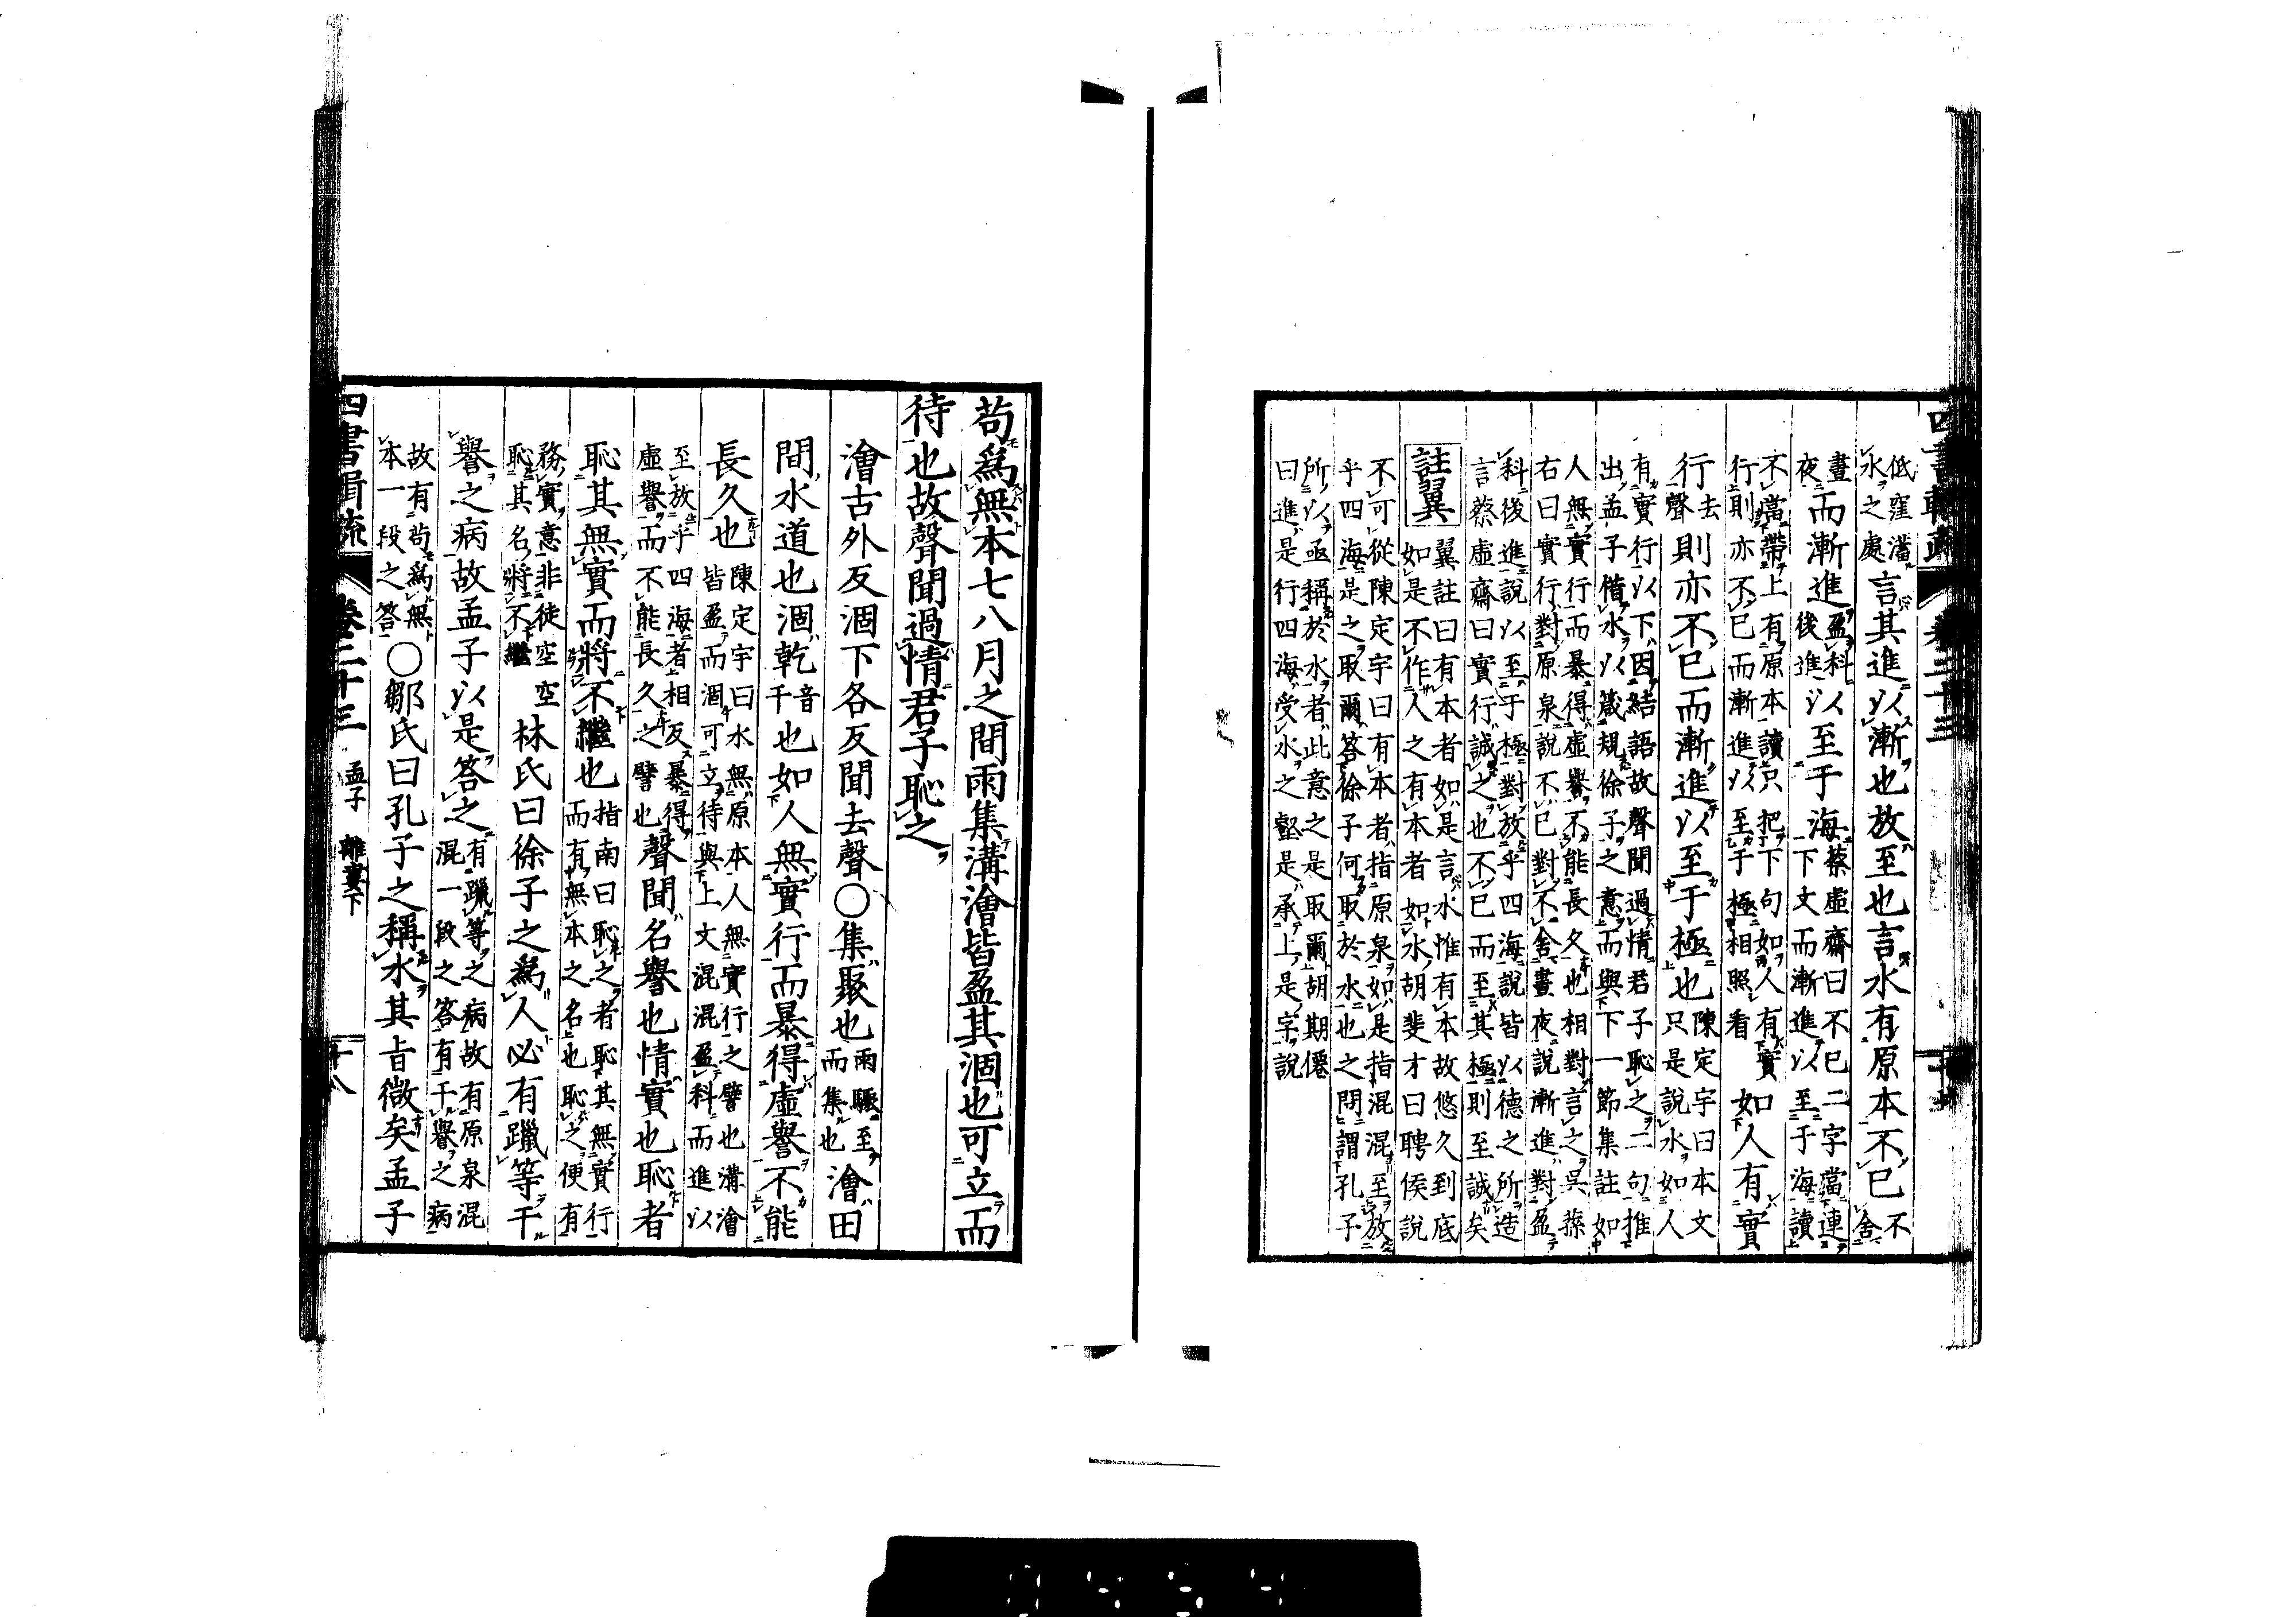 四書輯疏 卷二十三
低窪瀦
水之處言其進以漸也放至也言水有原本不已不
舍
晝而漸進盈科以至于海蔡虛齋曰不已二字當連
夜 後進 下文而漸進以至于海讀
不當帶上有原本讀只把下句如人有實
行則亦不已而漸進以至于極相照看 如人有實
行去聲則亦不已而漸進以至于極也陳定宇曰本文
只是說水如人
有實行以下因結語故聲聞過情君子恥之二句推
出孟子借水以箴規徐子之意而與下一節集註如
人無實行而暴得虛譽不能長久也相對言之吳蓀
右曰實行對原泉說不已對不舍晝夜說漸進對盈
科後進說以至于極對放乎四海說皆以德之所造
言蔡虛齋曰實行誠之也不已而至其極則至誠矣
註翼 翼註曰有本者如是言水惟有本故悠久到底
如是不作人之有本者如水胡斐才曰聘侯說
不可從陳定宇曰有本者指原泉如是指混混至放
乎四海是之取爾答徐子何取於水也之問謂孔子
所以亟稱於水者此意之是取爾胡期僊
曰進是行四海受水之壑是承上是字說
苟為無本七八月之間雨集溝澮皆盈其涸也可立而
待也故聲聞過情君子恥之
澮古外反涸下各反聞去聲〇集聚也雨驟至
而集也澮田
間水道也涸乾音千也如人無實行而暴得虛譽不能
長久也陳定宇曰水無原本人無實行之譬也溝澮
皆盈而涸可立待與上文混混盈科而進以
至放乎四海者相反暴得
虛譽而不能長久之譬也聲聞名譽也情實也恥者
恥其無實而將不繼也指南曰恥之者恥其無實行
而有無本之名也恥之便有
務實意非徒空空
恥其名將不繼 林氏曰徐子之為人必有躐等干
譽之病故孟子以是答之有躐等之病故有原泉混
混一段之答有干譽之病
故有苟為無
本一段之答〇鄒氏曰孔子之稱水其旨微矣孟子
四書輯疏 卷二十三 孟子 離婁下 十八